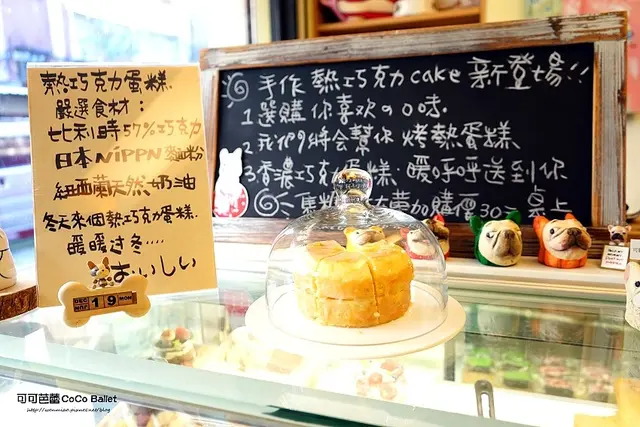 熱巧克力蛋糕.
嚴選食材：
比利時57%巧克力
日本NiPPN麵粉
紐西蘭天然奶油
冬天來個熱巧克力蛋糕.
暖暖过冬....
おいしい
19
MON
手作 熱巧克力 cake 新登場!!
1選購你喜欢の口味.
2我們將会幫你 烤熱蛋糕、
3香濃巧克力蛋糕.暖呼呼送到你
桌上
加購價30元
可可芭蕾 CoCo Ballet